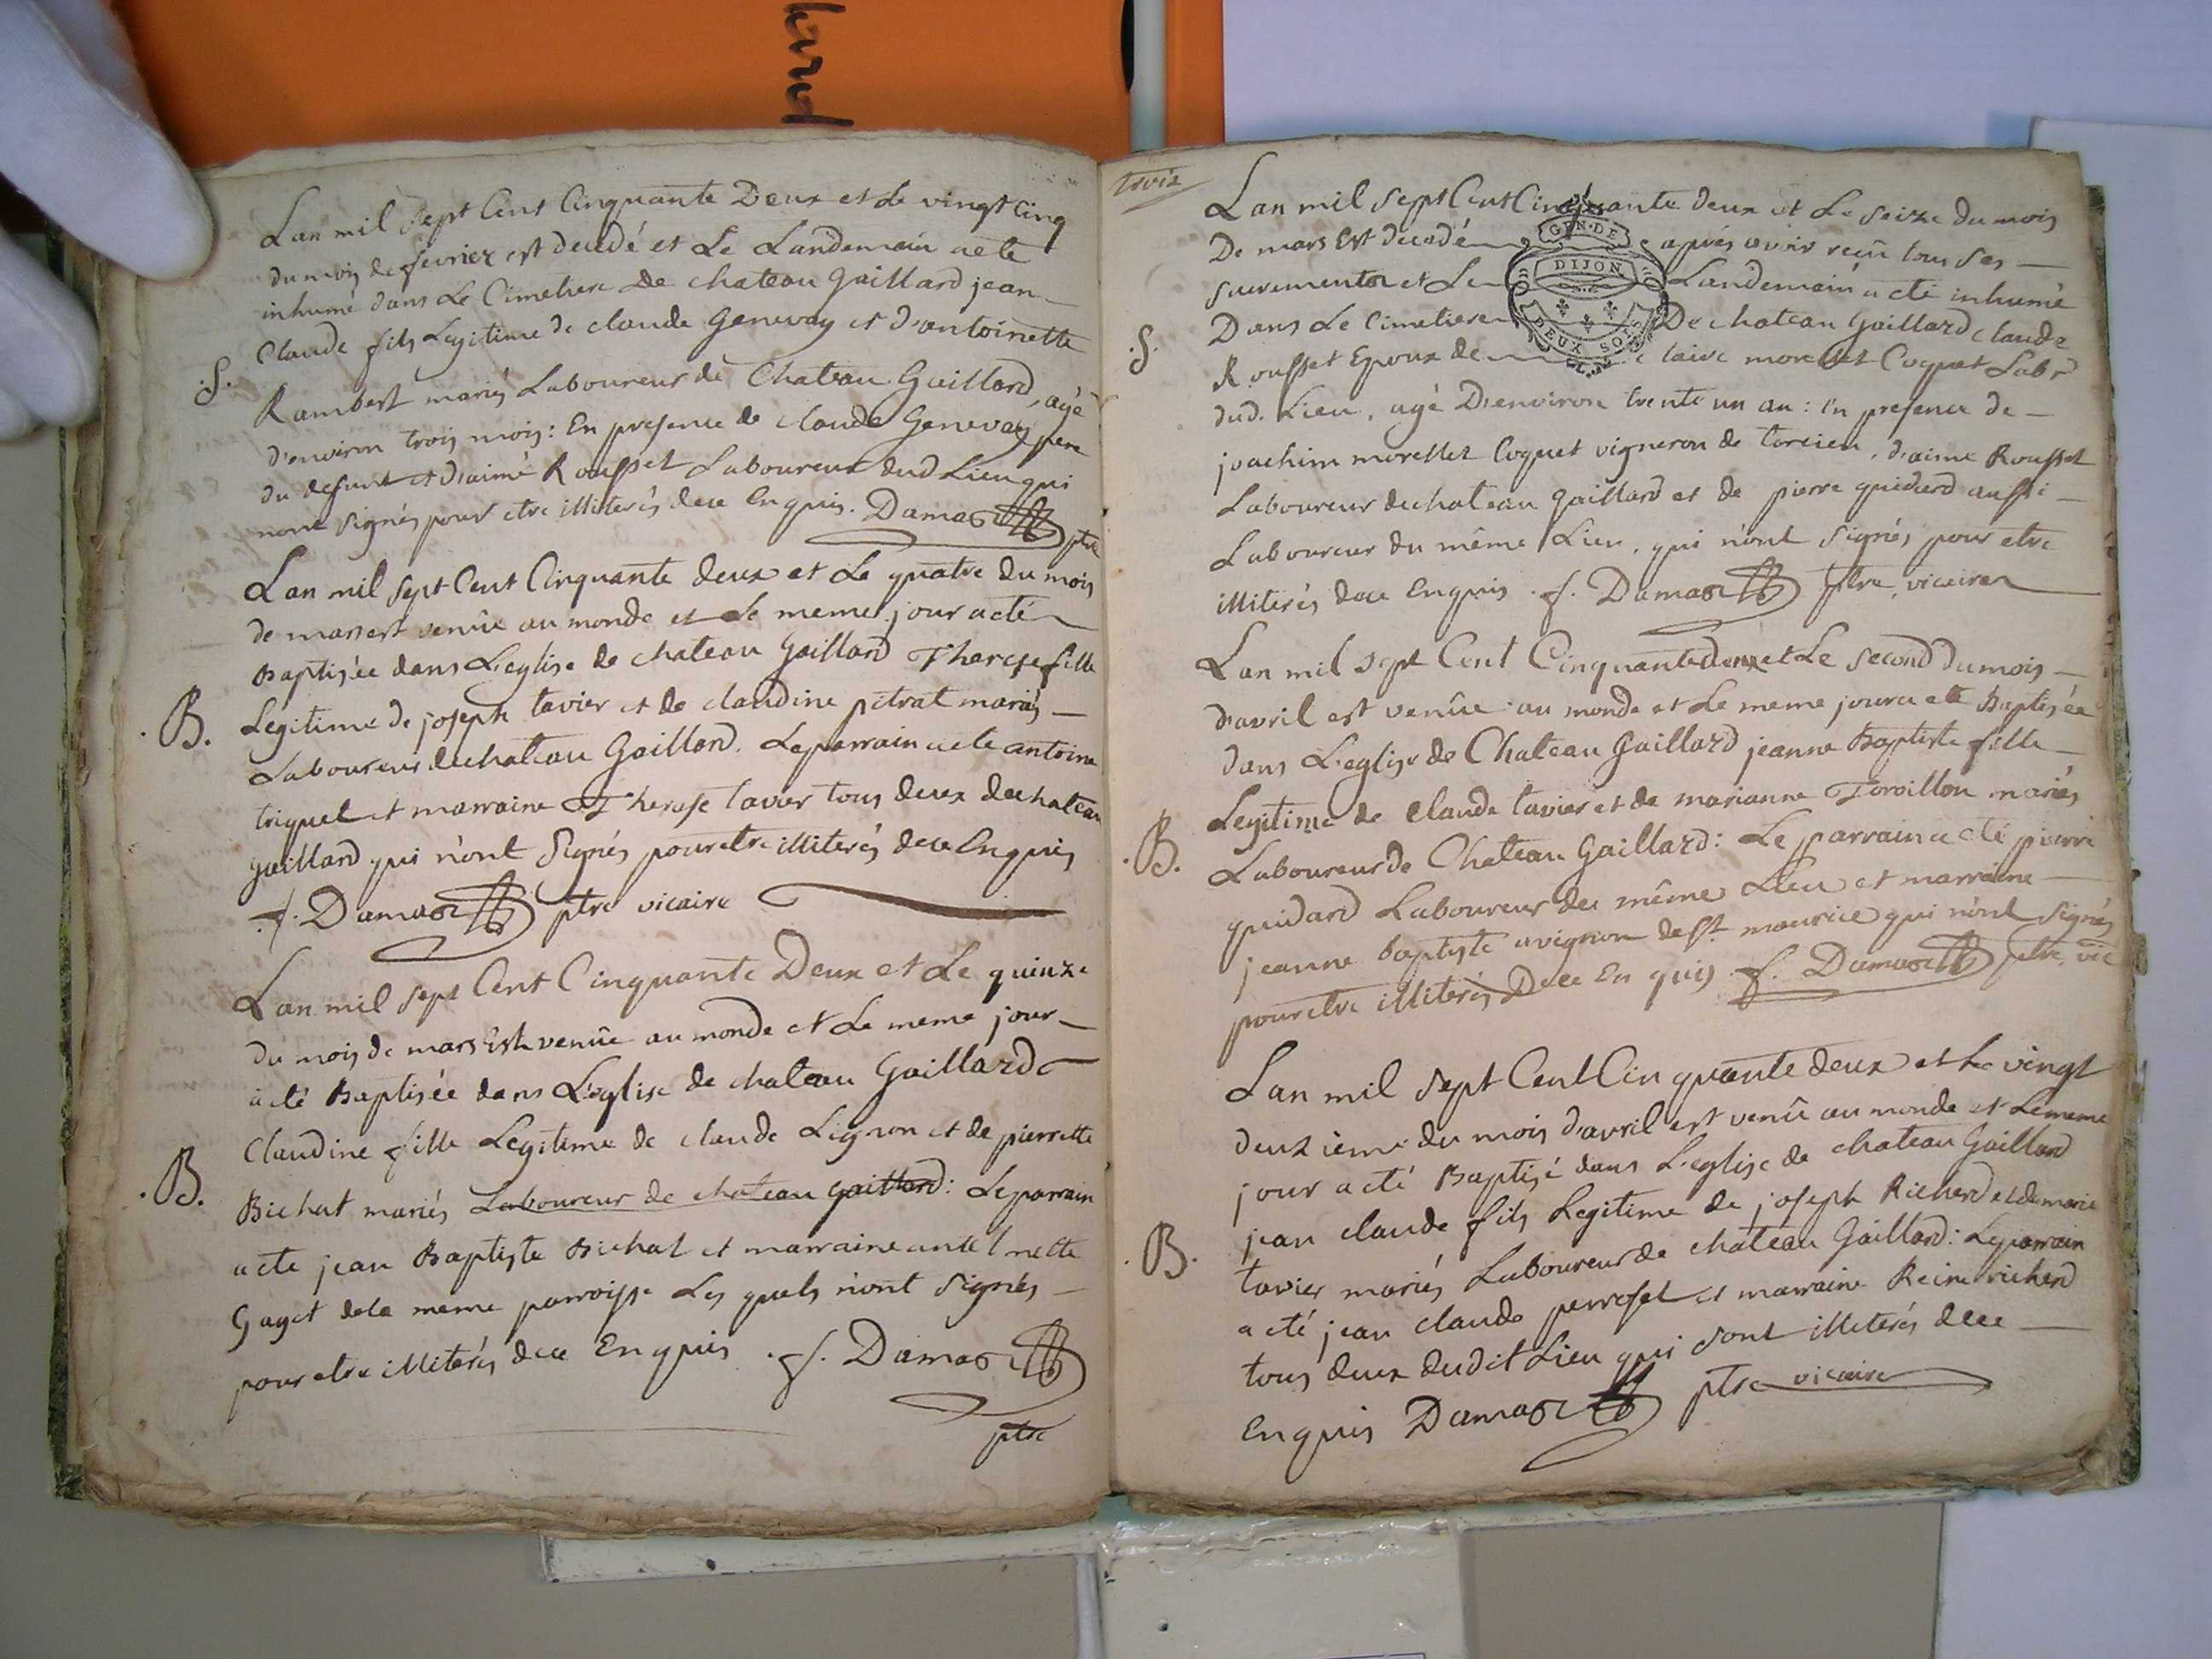 hard
Lan mil sept Cent Cinquante Deux et Le vingt Cinq
du mois de fevrier est decedé et Le Landemain a ete
inhumé dans Le Cimetiere de chateau Gaillard jean
.S.
Claude fils Legitime de claude Genevay et d'antoinette
Rambert mariés Laboureur de Chateau Gaillard, agé
d'environ trois mois: En presence de claude Genevay pere
du defunt et d'aimé Rousset Laboureur dud Lieu qui
nont signés pour etre illiterés de ce Enquis. Damas
ptre
Lan mil sept Cent Cinquante deux et Le quatre du mois
de mars est venüe au monde et Le meme jour a eté
Baptisée dans L'eglise de chateau Gaillard Therese fille
.B.
Legitime de joseph tavier et de claudine pitrat mariés
Laboureur de chateau Gaillard. Le parrain a ete antoine
triquet et marraine Therese tavier tous deux de chateau
gaillard qui n'ont Signés pour etre illiterés de ce Enquis
f. Damas ptre vicaire
Lan mil sept Cent Cinquante Deux et Le quinze
du mois de mars Est venüe au monde et Le meme jour
a eté Baptisée dans L'eglise de chateau Gaillard
Claudine fille Legitime de claude Lignon et de pierrette
.B.
Bichat mariés Laboureur de chateau gaillard: Le parrain
a ete jean Baptiste Bichat et marraine
Gaget de la meme parroisse Les quels n'ont signés
pour etre illiterés de ce Enquis .f. Damas
ptre
trois
Lan mil sept Cent Cinquante deux et Le seize du mois
De mars Est decedé après avoir reçû tous ses
sacrements et Le Landemain a eté inhumé
GEN. DE
DIJON
DEUX SOLS
.S.
Dans Le Cimetiere De chateau Gaillard claude
Rousset Epoux de claire morellet Coquet Labr
dud. Lieu, agé D'environ trente un an: En presence de
joachim morellet Coquet vigneron de torcieu, d'aimé Rousset
Laboureur de chateau Gaillard et de pierre guidard aussi
Laboureur du même Lieu, qui n'ont signés pour etre
illiterés de ce Enquis .f. Damas ptre, vicaire
Lan mil sept Cent Cinquante deux et Le second du mois
d'avril est venüe au monde et Le meme jour a eté Baptisée
dans L'eglise de Chateau Gaillard jeanne Baptiste fille
.B.
Legitime de Claude tavier et de marianne mariés
Laboureur de Chateau Gaillard: Le parrain a eté pierre
guidard Laboureur du même Lieu et marraine
jeanne baptiste avignon de St. maurice qui n'ont signés
pour etre illiterés De ce En quis .f. Damas ptre, vic
Lan mil sept Cent Cinquante deux et Le vingt
deuxieme du mois d'avril est venû au monde et Le meme
jour a eté Baptisé dans L'eglise de chateau Gaillard
.B.
jean claude fils Legitime de joseph Richerd et de marie
tavier mariés Laboureur de chateau Gaillard: Le parrain
a eté jean claude perroset et marraine Reine richerd
tous deux dudit Lieu qui sont illiterés de ce
Enquis Damas ptre vicaire